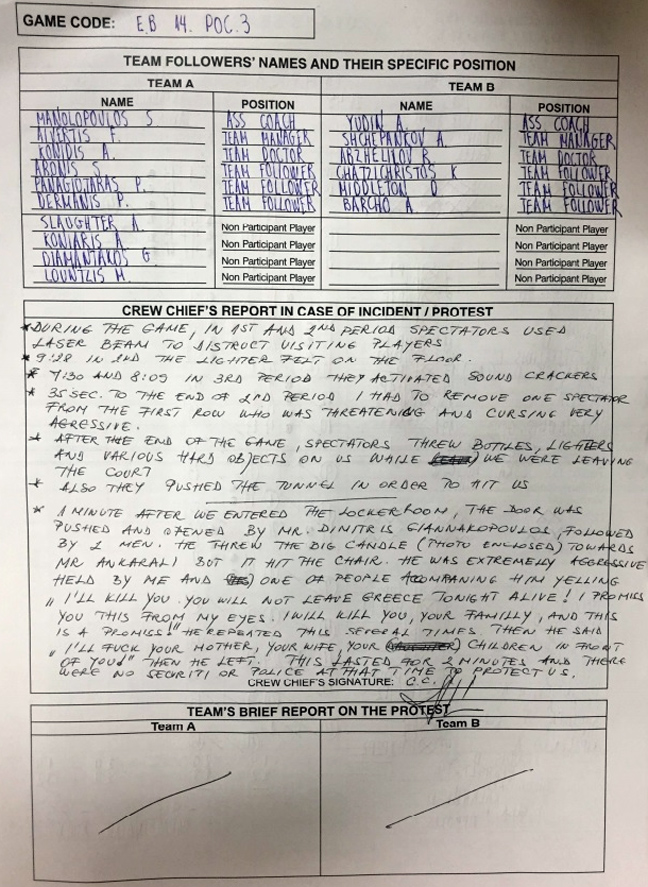 GAME CODE: E.B 14. POC.3
TEAM FOLLOWERS' NAMES AND THEIR SPECIFIC POSITION
TEAM A TEAM B
NAME POSITION NAME POSITION
MANOLOPOULOS S ASS COACH YUDIN A. ASS COACH
ALVERTIS F. TEAM MANAGER SHCHEPANKOV A. TEAM MANAGER
KONIDIS A. TEAM DOCTOR ABZHELILOV R. TEAM DOCTOR
ARONIS S. TEAM FOLLOWER CHATZICHRISTOS K TEAM FOLLOWER
PANAGIOTARAS P. TEAM FOLLOWER MIDDLETON D TEAM FOLLOWER
DERMANIS P. TEAM FOLLOWER BARCHO A. TEAM FOLLOWER
SLAUGHTER A. Non Participant Player Non Participant Player
KONIARIS A. Non Participant Player Non Participant Player
DIAMANTAKOS G Non Participant Player Non Participant Player
LOUNTZIS M. Non Participant Player Non Participant Player
CREW CHIEF'S REPORT IN CASE OF INCIDENT / PROTEST
* DURING THE GAME, IN 1ST AND 2ND PERIOD SPECTATORS USED
LASER BEAM TO DISTRUCT VISITING PLAYERS
* 9:28 IN 2ND THE LIGHTER FELT ON THE FLOOR.
* 7:30 AND 8:09 IN 3RD PERIOD THEY ACTIVATED SOUND CRACKERS
* 35 SEC. TO THE END OF 2ND PERIOD I HAD TO REMOVE ONE SPECTATOR
FROM THE FIRST ROW WHO WAS THREATENING AND CURSING VERY
AGRESSIVE.
* AFTER THE END OF THE GAME, SPECTATORS THREW BOTTLES, LIGHTERS
AND VARIOUS HARD OBJECTS ON US WHILE WE WERE LEAVING
THE COURT
* ALSO THEY PUSHED THE TUNNEL IN ORDER TO HIT US
* A MINUTE AFTER WE ENTERED THE LOCKERROOM, THE DOOR WAS
PUSHED AND OPENED BY MR. DIMITRIS GIANNAKOPOULOS, FOLLOWED
BY 2 MEN. HE THREW THE BIG CANDLE (PHOTO ENCLOSED) TOWARDS
MR ANKARALI BUT IT HIT THE CHAIR. HE WAS EXTREMELLY AGGRESSIVE
HELD BY ME AND ONE OF PEOPLE ACCOMPANING HIM YELLING
„ I'LL KILL YOU. YOU WILL NOT LEAVE GREECE TONIGHT ALIVE! I PROMISS
YOU THIS FROM MY EYES. I WILL KILL YOU, YOUR FAMILLY, AND THIS
IS A PROMISS!" HE REPEATED THIS SEVERAL TIMES. THEN HE SAID
„ I'LL FUCK YOUR MOTHER, YOUR WIFE, YOUR CHILDREN IN FRONT
OF YOU!" THEN HE LEFT. THIS LASTED FOR 2 MINUTES AND THERE
WERE NO SECURITI OR POLICE AT THAT TIME TO PROTECT US.
CREW CHIEF'S SIGNATURE: C.C.
TEAM'S BRIEF REPORT ON THE PROTEST
Team A Team B